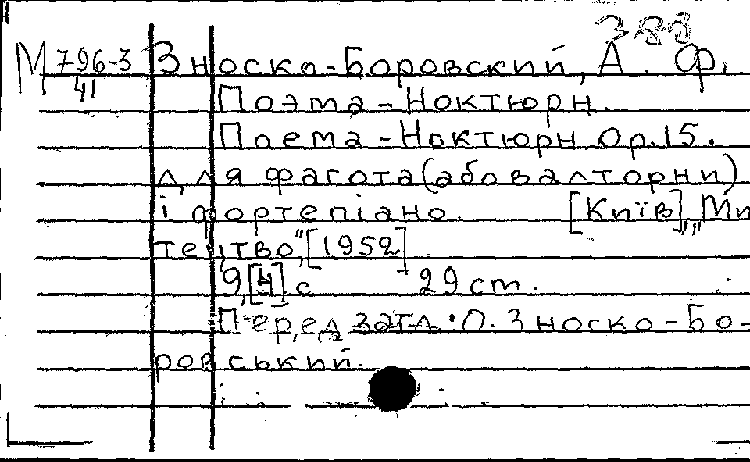 388
М 796-3 Зноско-Боровский, А. Ф.
41
Поэма-Ноктюрн.
Поема-Ноктюрн Ор.15.
для фагота (або валторни)
і фортепіано. [Київ], „Ми
тецтво", [1952]
9,[4] с 29 ст.
Перед загл.: О. Зноско-Бо-
ровський.